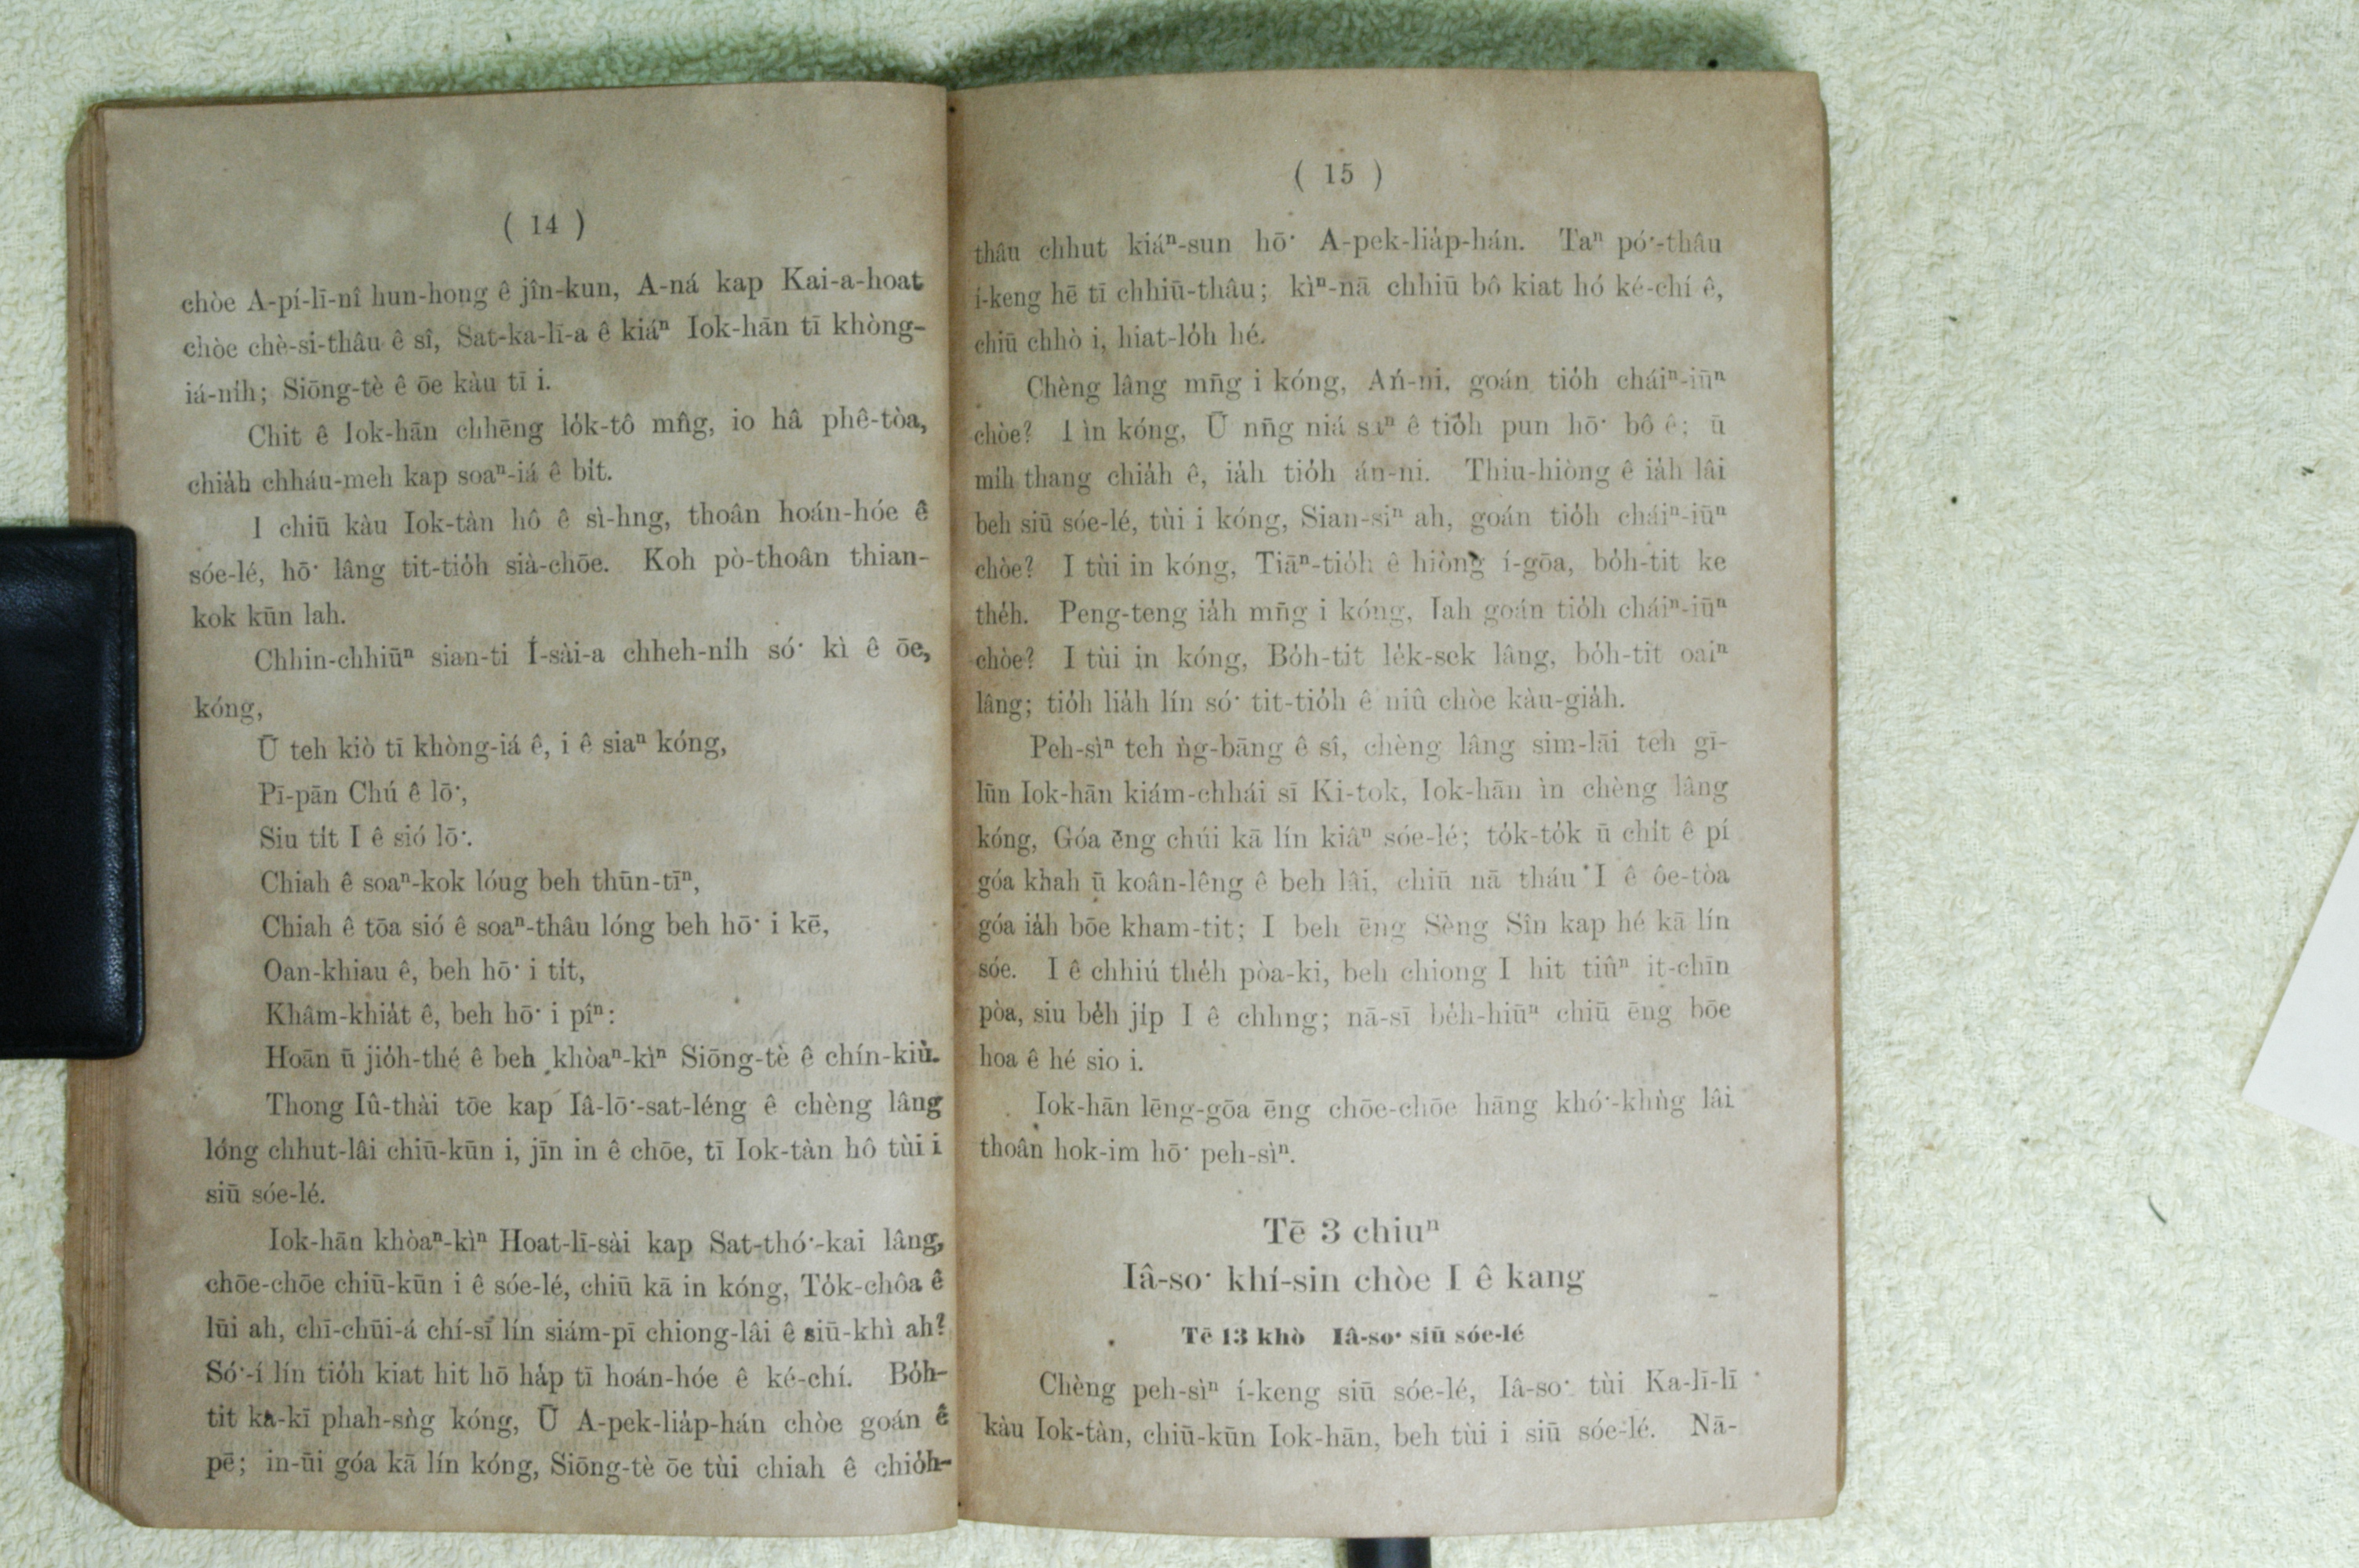 ( 14 )
chòe A-pí-lī-nî hun-hong ê jîn-kun, A-ná kap Kai-a-hoat
chòe chè-si-thâu ê sî, Sat-ka-lī-a ê kiáⁿ Iok-hān tī khòng-
iá-ni̍h; Siōng-tè ê ōe kàu tī i.
Chit ê Iok-hān chhēng lo̍k-tô mn̂g, io hâ phê-tòa,
chia̍h chháu-meh kap soaⁿ-iá ê bi̍t.
I chiū kàu Iok-tàn hô ê sì-hng, thoân hoán-hóe ê
sóe-lé, hō͘ lâng tit-tio̍h sià-chōe. Koh pò-thoân thian-
kok kūn lah.
Chhin-chhiūⁿ sian-ti Í-sài-a chheh-ni̍h só͘ kì ê ōe,
kóng,
Ū teh kiò tī khòng-iá ê, i ê siaⁿ kóng,
Pī-pān Chú ê lō͘,
Siu ti̍t I ê sió lō͘.
Chiah ê soaⁿ-kok lóug beh thūn-tīⁿ,
Chiah ê tōa sió ê soaⁿ-thâu lóng beh hō͘ i kē,
Oan-khiau ê, beh hō͘ i ti̍t,
Khâm-khia̍t ê, beh hō͘ i pîⁿ:
Hoān ū jio̍h-thé ê beh khòaⁿ-kìⁿ Siōng-tè ê chín-kiù.
Thong Iû-thài tōe kap Iâ-lō͘-sat-léng ê chèng lâng
lóng chhut-lâi chiū-kūn i, jīn in ê chōe, tī Iok-tàn hô tùi i
siū sóe-lé.
Iok-hān khòaⁿ-kìⁿ Hoat-lī-sài kap Sat-thó͘-kai lâng,
chōe-chōe chiū-kūn i ê sóe-lé, chiū kā in kóng, To̍k-chôa ê
lūi ah, chī-chūi-á chí-sī lín siám-pī chiong-lâi ê siū-khì ah?
Só͘-í lín tio̍h kiat hit hō ha̍p tī hoán-hóe ê ké-chí. Bo̍h-
tit ka-kī phah-sǹg kóng, Ū A-pek-lia̍p-hán chòe goán ê
pē; in-ūi góa kā lín kóng, Siōng-tè ōe tùi chiah ê chio̍h-
( 15 )
thâu chhut kiáⁿ-sun hō͘ A-pek-lia̍p-hán. Taⁿ pó͘-thâu
í-keng hē tī chhiū-thâu; kìⁿ-nā chhiū bô kiat hó ké-chí ê,
chiū chhò i, hiat-lo̍h hé.
Chèng lâng mn̄g i kóng, Án-ni, goán tio̍h cháiⁿ-iūⁿ
chòe? I ìn kóng, Ū nn̄g niá saⁿ ê tio̍h pun hō͘ bô ê; ū
mi̍h thang chia̍h ê, ia̍h tio̍h án-ni. Thiu-hiòng ê ia̍h lâi
beh siū sóe-lé, tùi i kóng, Sian-siⁿ ah, goán tio̍h cháiⁿ-iūⁿ
chòe? I tùi in kóng, Tiāⁿ-tio̍h ê hiòng í-gōa, bo̍h-tit ke
the̍h. Peng-teng ia̍h mn̄g i kóng, Iah goán tio̍h cháiⁿ-iūⁿ
chòe? I tùi in kóng, Bo̍h-tit le̍k-sek lâng, bo̍h-tit oaiⁿ
lâng; tio̍h lia̍h lín só͘ tit-tio̍h ê niû chòe kàu-gia̍h.
Peh-sìⁿ teh ǹg-bāng ê sî, chèng lâng sim-lāi teh gī-
lūn Iok-hān kiám-chhái sī Ki-tok, Iok-hān ìn chèng lâng
kóng, Góa ēng chúi kā lín kiâⁿ sóe-lé; to̍k-to̍k ū chi̍t ê pí
góa khah ū koân-lêng ê beh lâi, chiū nā tháu I ê ôe-tòa
góa ia̍h bōe kham-tit; I beh ēng Sèng Sîn kap hé kā lín
sóe. I ê chhiú the̍h pòa-ki, beh chiong I hit tiûⁿ it-chīn
pòa, siu be̍h ji̍p I ê chhng; nā-sī be̍h-hiūⁿ chiū ēng bōe
hoa ê hé sio i.
Iok-hān lēng-gōa ēng chōe-chōe hāng khó͘-khǹg lâi
thoân hok-im hō͘ peh-sìⁿ.
Tē 3 chiuⁿ
Iâ-so͘ khí-sin chòe I ê kang
Tē 13 khò Iâ-so͘ siū sóe-lé
Chèng peh-sìⁿ í-keng siū sóe-lé, Iâ-so͘ tùi Ka-lī-lī
kàu Iok-tàn, chiū-kūn Iok-hān, beh tùi i siū sóe-lé. Nā-